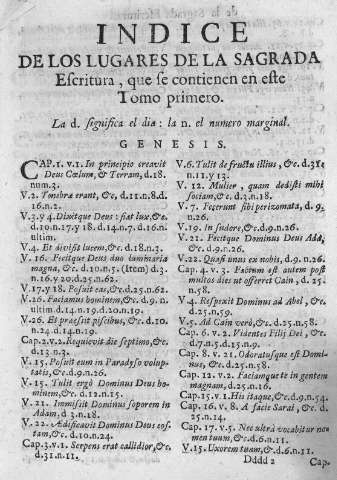 INDICE
DE LOS LUGARES DE LA SAGRADA
Escritura, que se contienen en este
Tomo primero.
La d. significa el dia: la n. el numero marginal.
GENESIS.
CAP.1. v.1. In principio creavit
Deus Cœlum, & Terram, d.18.
num.3.
V.2. Tenebræ erant, &c, d.11.n.8.d.
16.n.2.
V.3. y 4. Dixitque Deus: fiat lux, &c.
d.10.n.17. y 18. d.14.n.7. d.16.n.
ultim.
V.4. Et divisit lucem, &c. d.18.n.3.
V. 16. Fecitque Deus duo luminaria
magna, &c. d.10.n.5. (Item) d.3.
n.16. y 20. d.25.n.62.
V.17. y 18. Posuit eas, &c. d.25.n.62.
V.26. Faciamus hominem, &c. d.9. n.
ultim. d.14.n.19. d.20.n.19.
V.26. Et præsit piscibus, &c. d.10.
n.24. d.14.n.19.
Cap.2. v.2. Requievit die septimo, &c.
d.13. n.3.
V.15. Posuit eum in Paradyso volup-
tatis, &c. d.9.n.26.
V.15. Tulit ergò Dominus Deus ho-
minem, &c. d.12.n.15.
V.21. Immisit Dominus soporem in
Adam, d.3.n.18.
V.22. Ædificavit Dominus Deus cos-
tam, &c. d.10.n.24.
Cap.3. v.1. Serpens erat callidior, &c.
d.31.n.11.
V.6. Tulit de fructu illius, &c. d.31.
n.11. y 13.
V.12. Mulier, quam dedisti mihi
sociam, &c. d.3.n.18.
V.7. Fecerunt sibi perizomata, d.9.
n.26.
V.19. In sudore, &c. d.9.n.26.
V.21. Fecitque Dominus Deus Adæ,
&c. d.9.n.26.
V.22. Quasi unus ex nobis, d.9. n.26.
Cap. 4. v.3. Factum est autem post
multos dies ut offerret Cain, d.25.
n.58.
V.4. Respexit Dominus ad Abel, &c.
d.25.n.59.
V.5. Ad Cain verò, &c. d.25.n.58.
Cap. 6. v.2. Videntes Filij Dei, &c.
d.7.n.5. d.15.n.9.
Cap. 8. v. 21. Odoratusque est Domi-
nus, &c. d.25.n.58.
Cap. 12. v.2. Faciamque te in gentem
magnam, d.25.n.16.
Cap.15. v.1. His itaque, &c. d.9.n.54.
Cap. 16. v. 8. A facie Sarai, &c. d.
24.n.5.
Cap. 17. v.5. Nec ultrà vocabitur no-
men tuum, &c. d.6.n.11.
V.15. Uxorem tuam, &c. d.6.n.11.
Dddd 2
Cap.